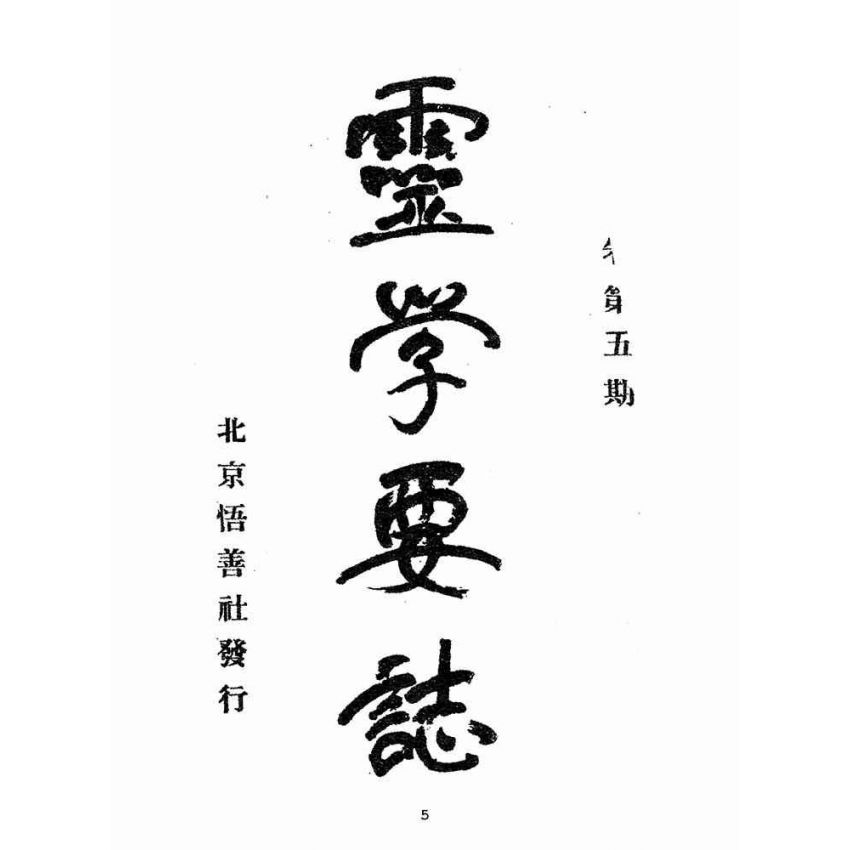 第五期
靈学要誌
北京悟善社發行
5